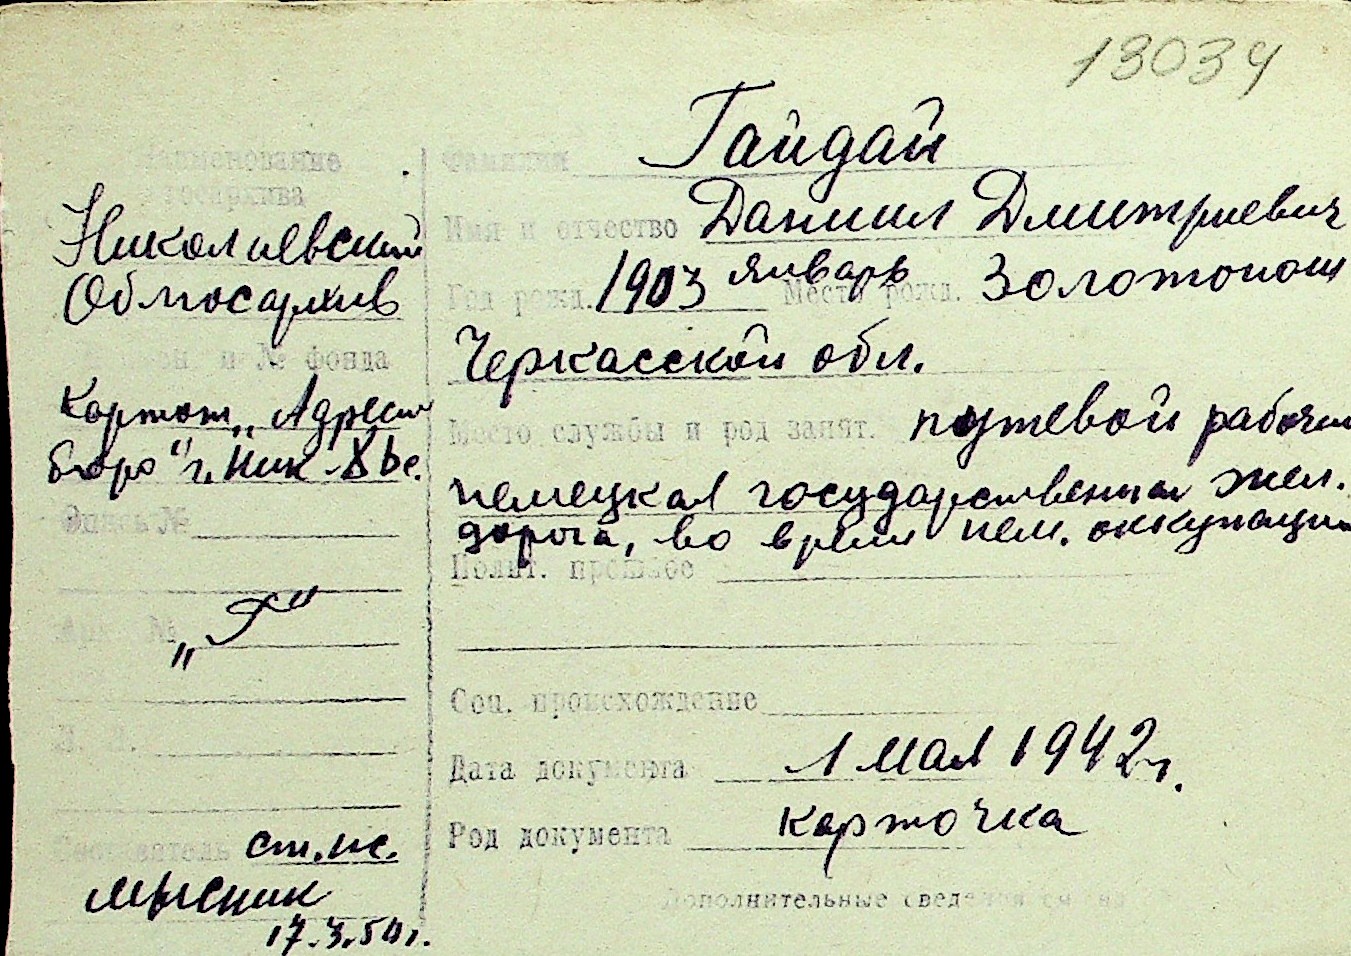 13034
Наименование
госархива
Николаевский
Облгосархив
и № фонда
Картот. „Адресн
бюро" г. Ник-
Опись №
Арх. №
„Г"
Составитель ст. нс.
Мысник
17.3.50г.
Фамилия Гайдай
Имя и отчество Даниил Дмитриевич
Год рожд. 1903 январь Место рожд. Золотонош
Черкасской обл.
Место службы и род занят. путевой рабочий
немецкая государственная жел.
дорога, во время нем. оккупации
Полит. прошлое
Соц. происхождение
Дата документа 1 мая 1942 г.
Род документа карточка
Дополнительные сведения